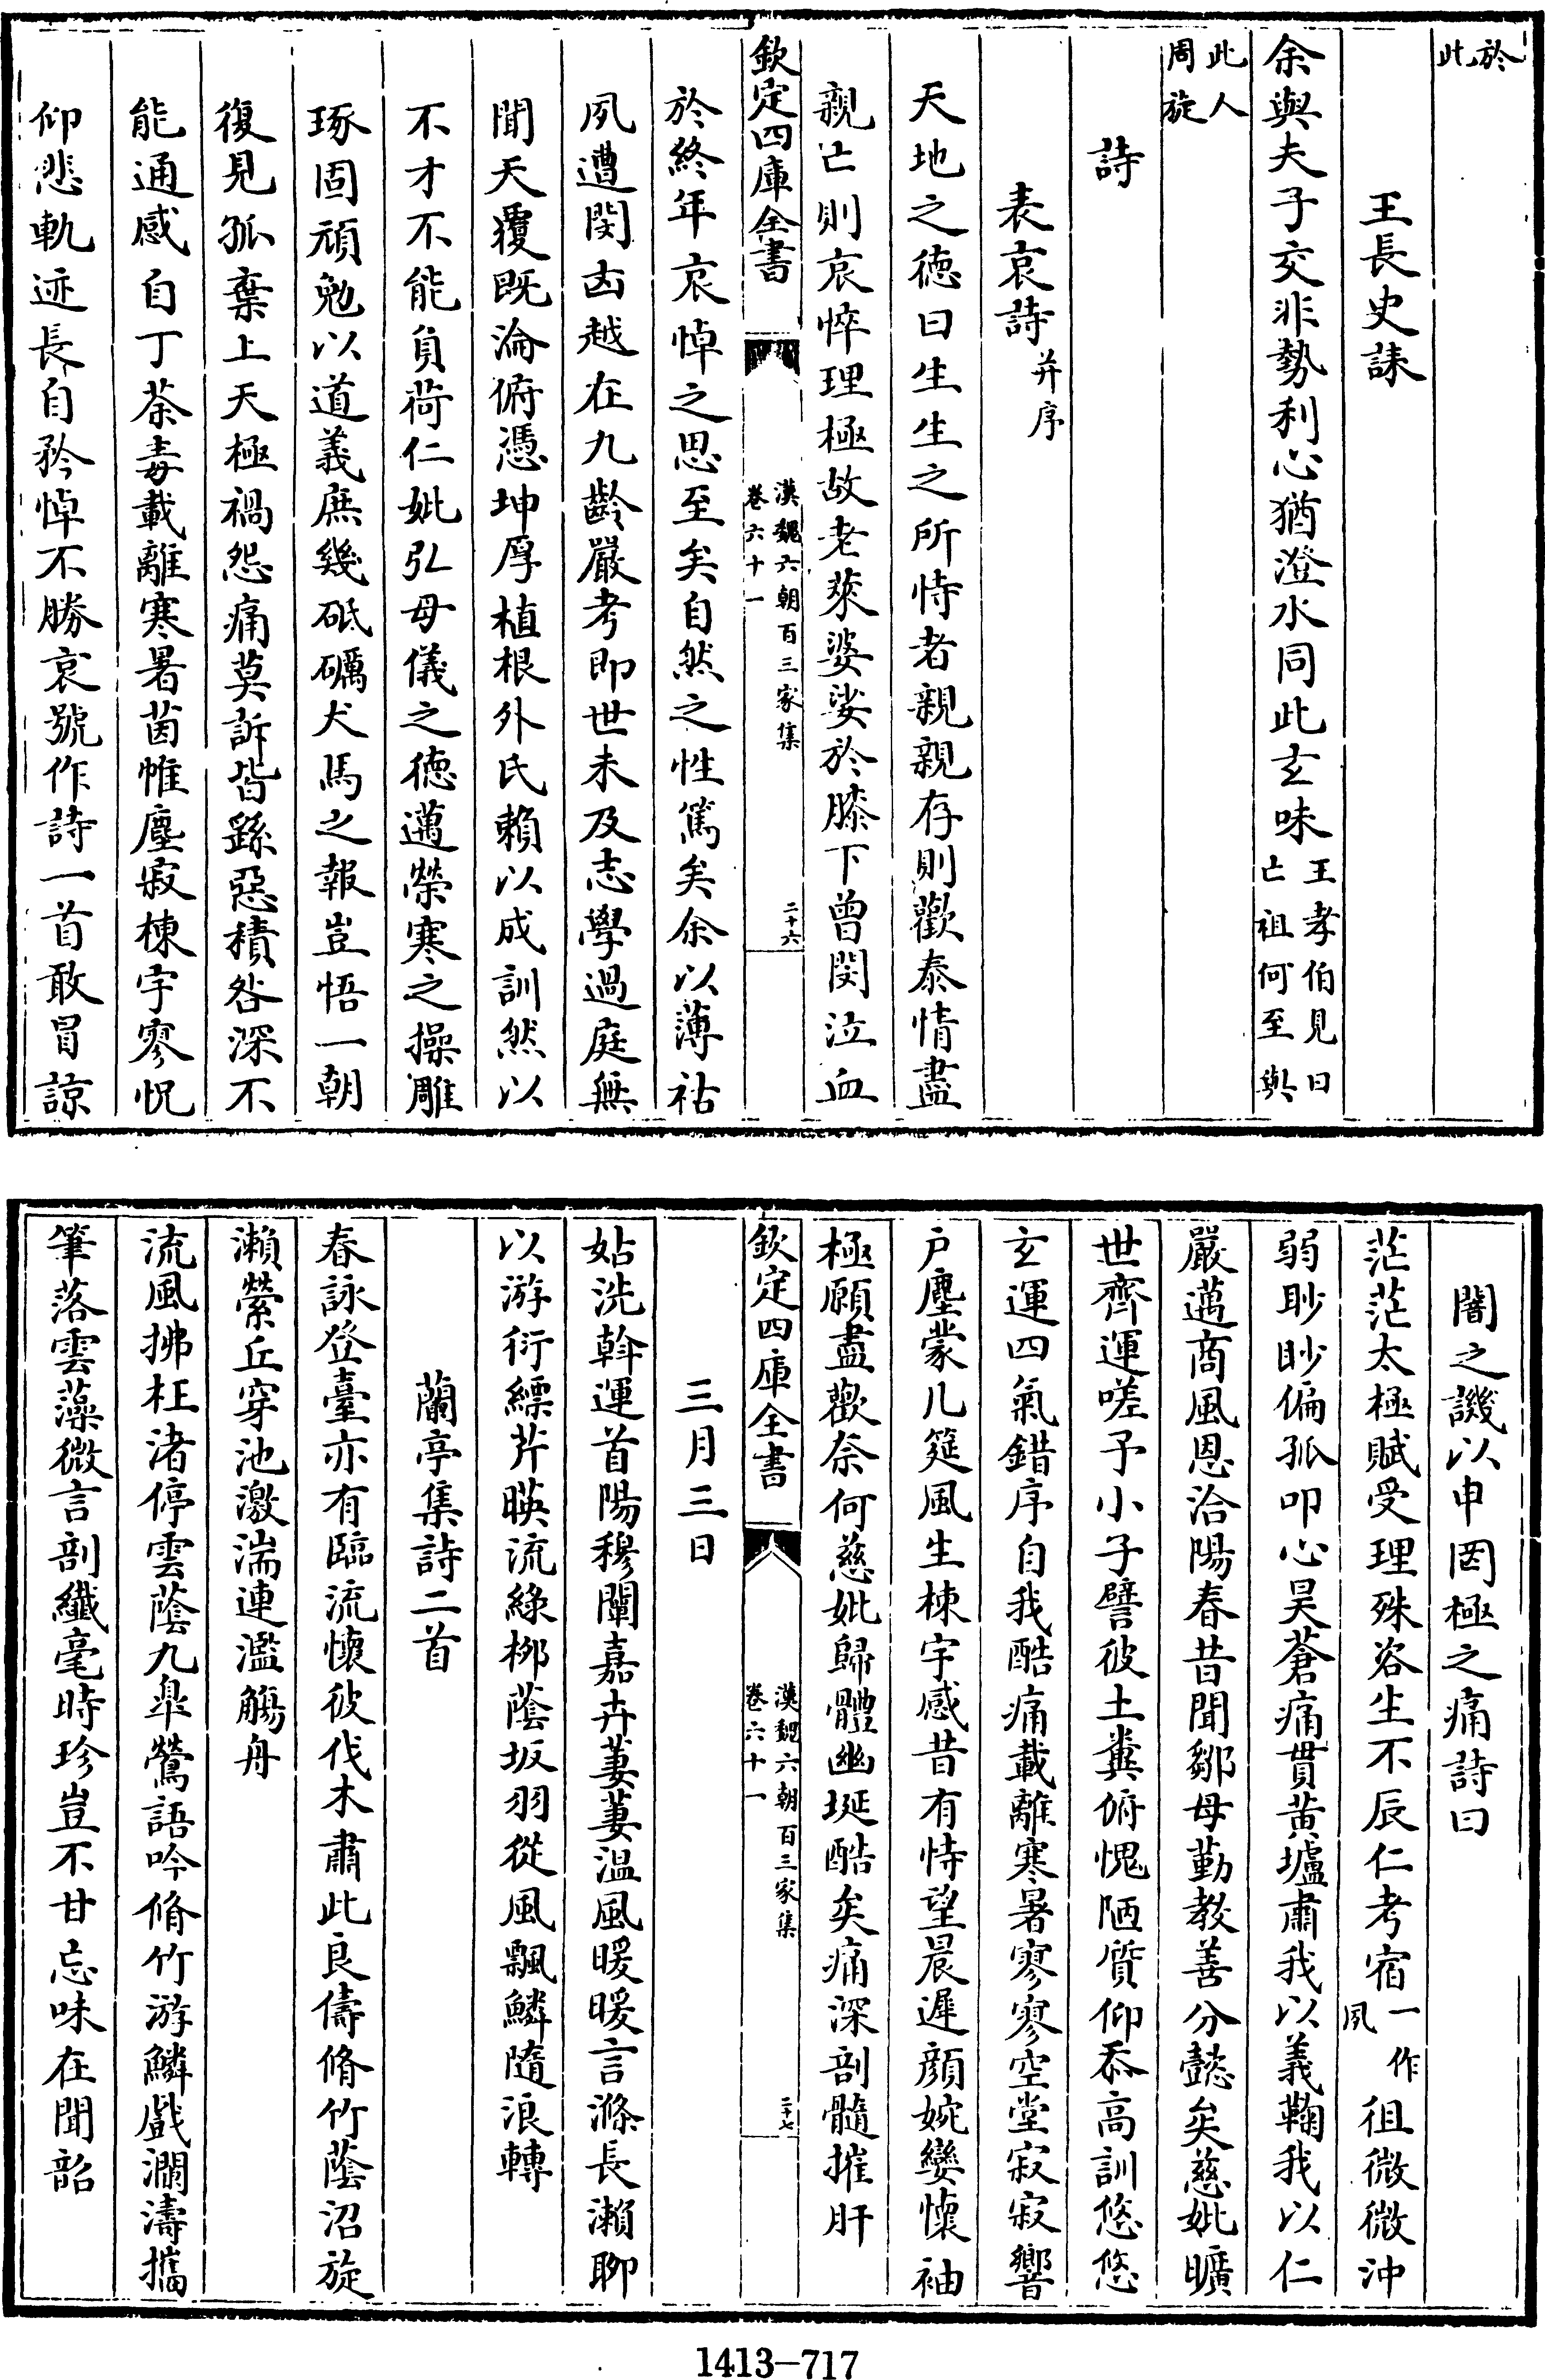 於此
王長史誄
余與夫子交非勢利心猶澄水同此玄味王孝伯見曰亡祖何至與
此人周旋
詩
表哀詩并序
天地之德曰生生之所恃者親親存則歡泰情盡
親亡則哀悴理極故老萊婆娑於膝下曾閔泣血
欽定四庫全書
漢魏六朝百三家集
卷六十一
二十六
於終年哀悼之思至矣自然之性篤矣余以薄祜
夙遭閔凶越在九齡嚴考即世未及志學過庭無
聞天覆既淪俯憑坤厚植根外氏賴以成訓然以
不才不能負荷仁妣弘母儀之德邁榮寒之操雕
琢固頑勉以道義庶幾砥礪犬馬之報豈悟一朝
復見孤棄上天極禍怨痛莫訴皆繇惡積咎深不
能通感自丁荼毒載離寒暑茵帷塵寂棟宇寥怳
仰悲軌迹長自矜悼不勝哀號作詩一首敢冒諒
闇之譏以申罔極之痛詩曰
茫茫太極賦受理殊咨生不辰仁考宿一作夙徂微微沖
弱眇眇偏孤叩心昊蒼痛貫黃壚肅我以義鞠我以仁
嚴邁商風恩洽陽春昔聞鄒母勤教善分懿矣慈妣曠
世齊運嗟予小子譬彼土糞俯愧陋質仰忝高訓悠悠
玄運四氣錯序自我酷痛載離寒暑寥寥空堂寂寂響
户塵蒙几筵風生棟宇感昔有恃望晨遲顏婉孌懷袖
極願盡歡奈何慈妣歸體幽埏酷矣痛深剖髓摧肝
欽定四庫全書
漢魏六朝百三家集
卷六十一
二十七
三月三日
姑洗斡運首陽穆闡嘉卉萋萋温風暖暖言滌長瀨聊
以游衍縹芹暎流綠柳蔭坂羽從風飄鱗隨浪轉
蘭亭集詩二首
春詠登臺亦有臨流懷彼伐木肅此良儔脩竹蔭沼旋
瀨縈丘穿池激湍連濫觴舟
流風拂枉渚停雲蔭九臯鶯語吟脩竹游鱗戲瀾濤攜
筆落雲藻微言剖纖毫時珍豈不甘忘味在聞韶
1413-717